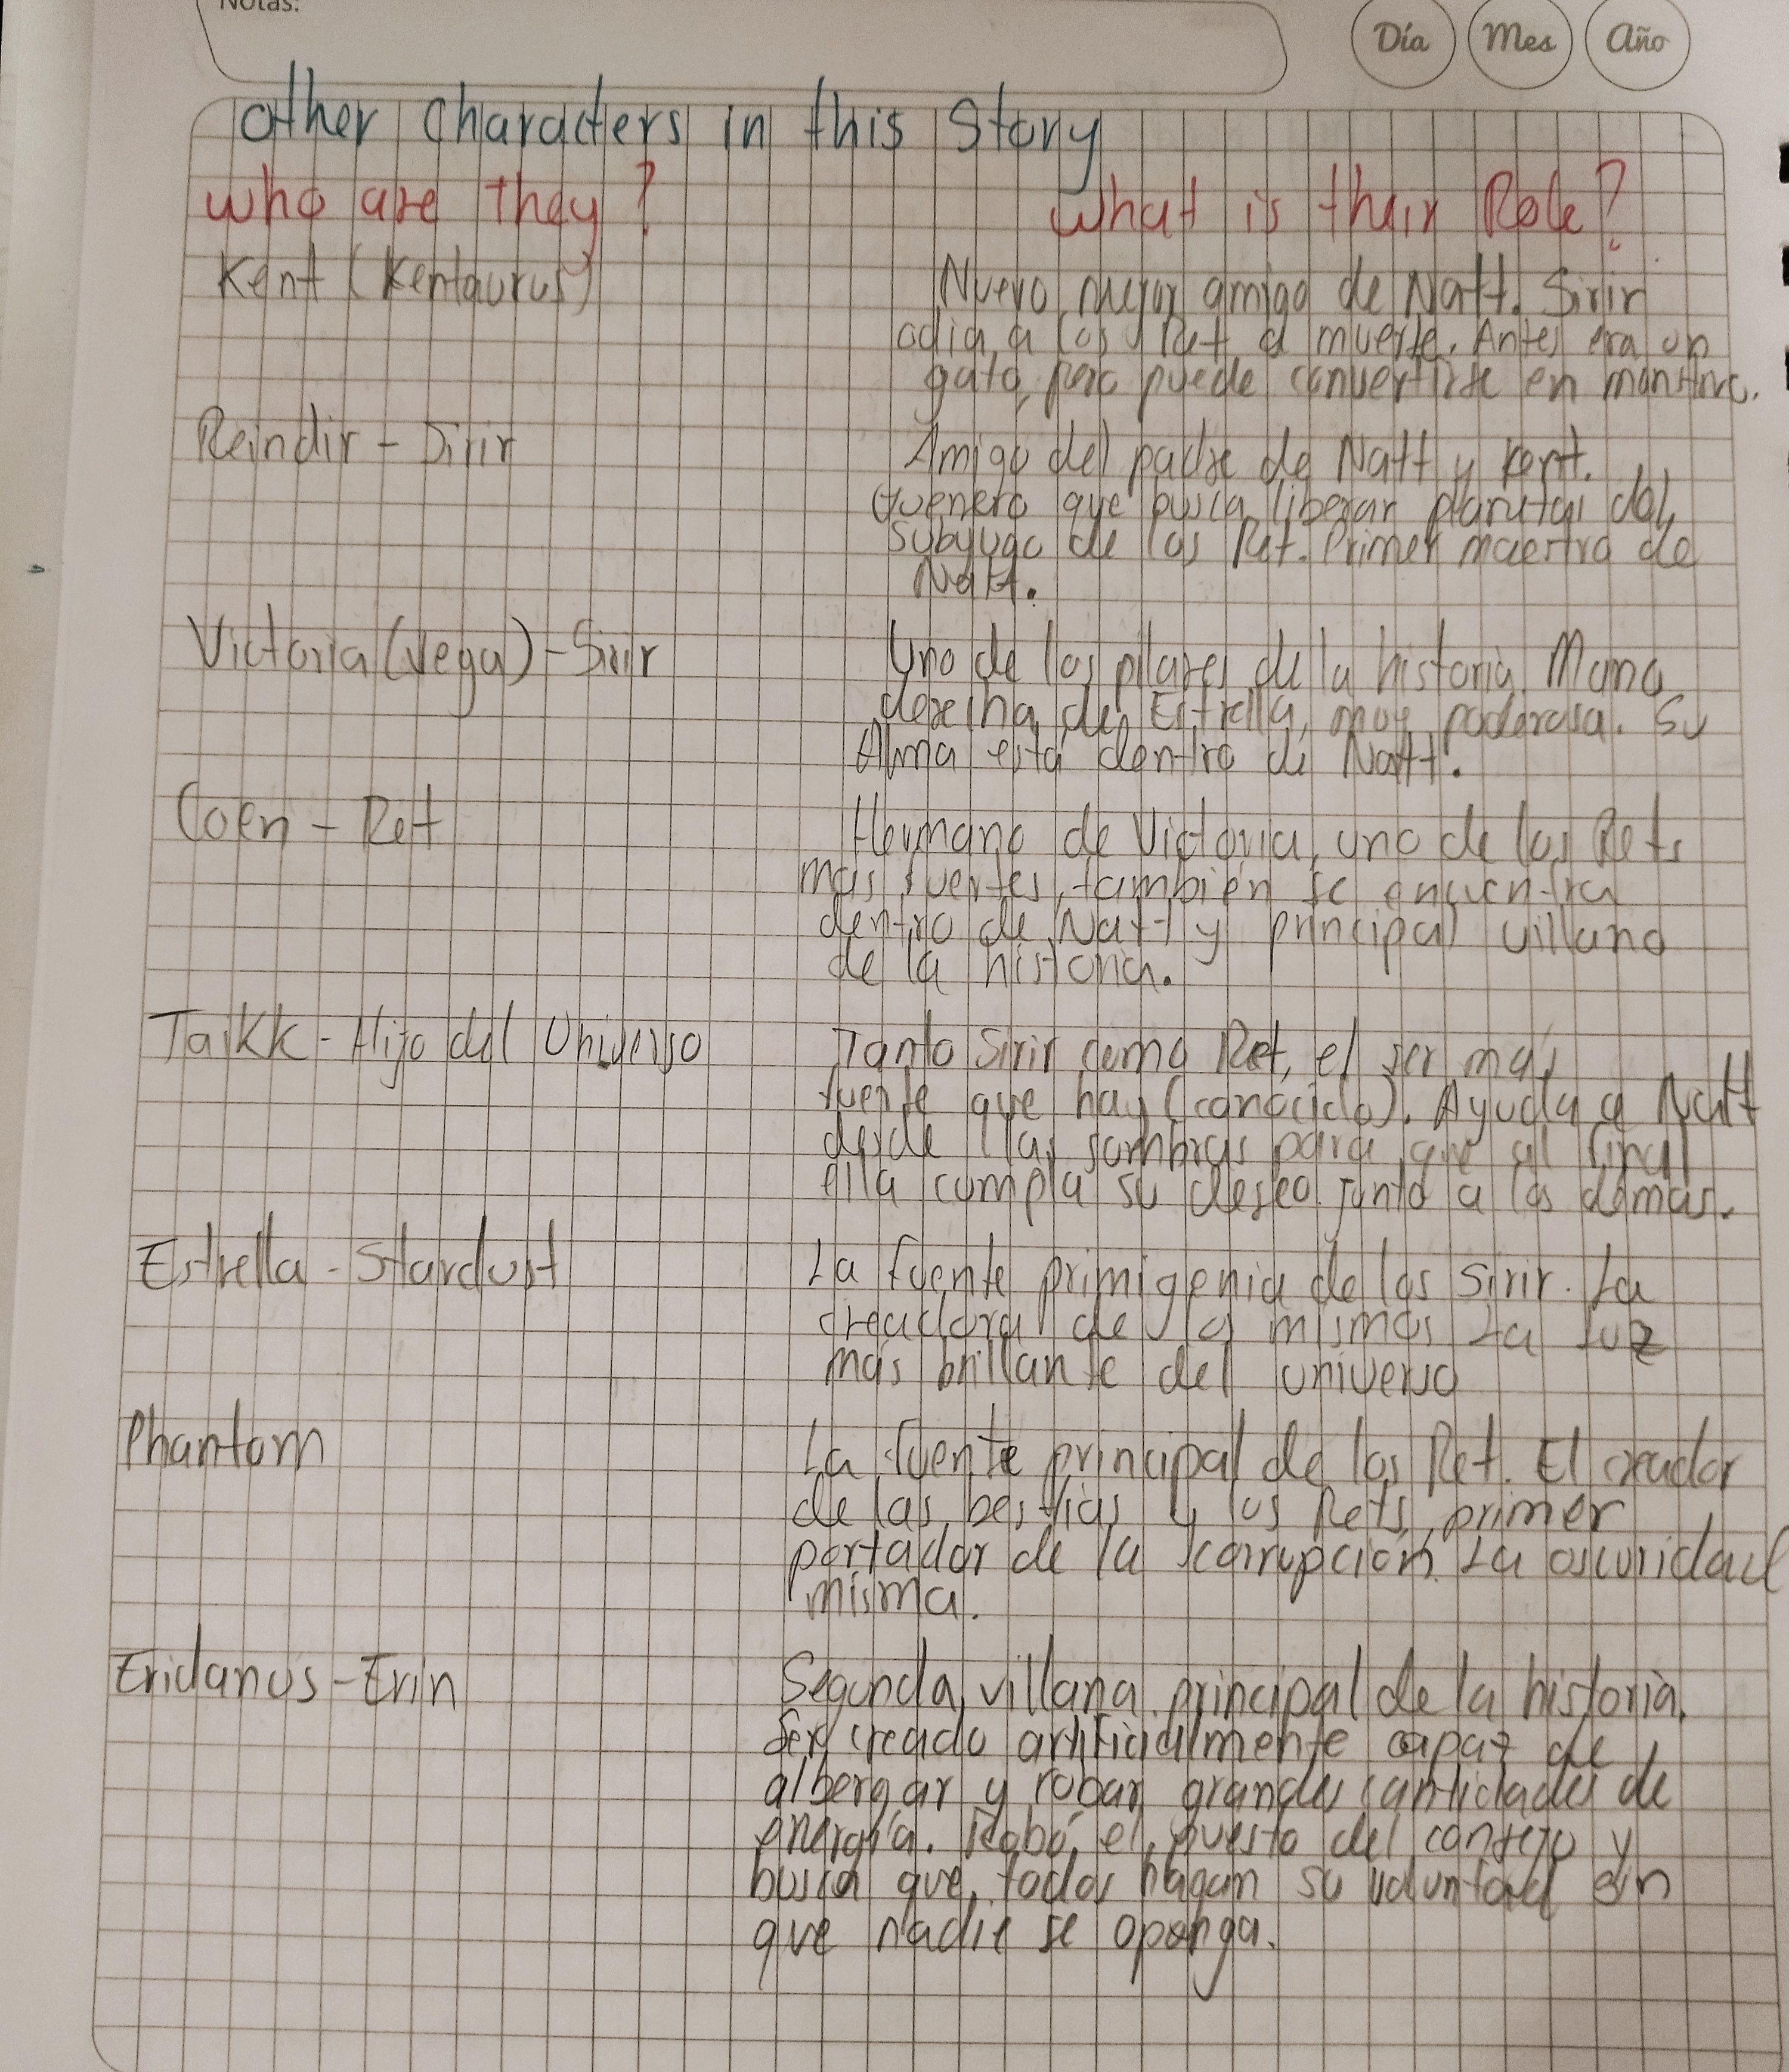 Notas:
Día Mes Año
other characters in this Story
who are they? What is their Role?
Kent (Kentaurus) Nuevo mejor amigo de Natt. Sirir
odia a los Ret a muerte. Antes era un
gato, pero puede convertirse en monstruo.
Reindir - Sirir Amigo del padre de Natt y Kent.
Guerrero que busca liberar planetas del
Subyugo de los Ret. Primer maestro de
Natt.
Victoria (Vega) - Sirir Uno de los pilares de la historia. Mano
derecha de Estrella, muy poderosa. Su
Alma está dentro de Natt.
Coen - Ret Hermano de Victoria, uno de los Rets
más fuertes, también se encuentra
dentro de Natt y principal villano
de la historia.
Taikk - Hijo del Universo Tanto Sirir como Ret, el ser más
fuerte que hay (conocido). Ayuda a Natt
desde las sombras para que al final
ella cumpla su deseo junto a los demás.
Estrella - Stardust La fuente primigenia de los Sirir. La
creadora de los mismos La luz
más brillante del universo
Phantom La fuente principal de los Ret. El creador
de las bestias y los Rets, primer
portador de la corrupción. La oscuridad
misma.
Eridanus - Erin Segunda villana principal de la historia.
Ser creado artificialmente capaz de
albergar y robar grandes cantidades de
energía. Robó el puesto del consejo y
busca que todos hagan su voluntad sin
que nadie se oponga.